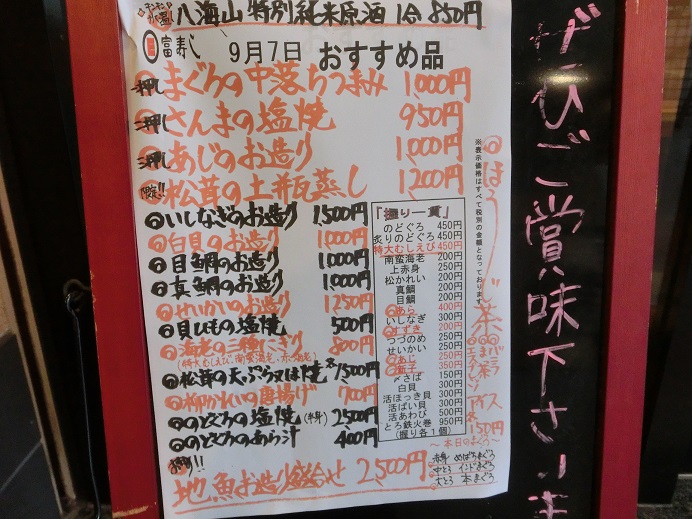 八海山 特別純米原酒 1合 850円
富寿し 9月7日 おすすめ品
一押し まぐろの中落ちつまみ 1,000円
二押し さんまの塩焼 950円
三押し あじのお造り 1,000円
限定!! 松茸の土瓶蒸し 1200円
いしなぎのお造り 1,500円
白貝のお造り 1,000円
目鯛のお造り 1,000円
真鯛のお造り 1,000円
せいかいのお造り 1250円
貝ひもの塩焼 500円
海老の三種にぎり 800円
(特大むしえび、南蛮海老、赤海老)
松茸の天ぷら又は焼 各1,500円
柳かれいの唐揚げ 700円
のどぐろの塩焼(半身) 2,500円
のどぐろのあら汁 400円
地魚お造り盛合せ 2,500円
『握り一貫』
のどぐろ 450円
炙りのどぐろ 450円
特大むしえび 450円
南蛮海老 200円
上赤身 250円
松かれい 200円
真鯛 200円
目鯛 200円
あら 400円
いしなぎ 300円
すずき 200円
つづのめ 250円
せいかい 250円
あじ 250円
新子 350円
〆さば 150円
白貝
活ほっき貝 300円
活ばい貝 300円
活あわび 500円
とろ鉄火巻 950円
(握り各1個)
※表示価格はすべて税別の金額となっております。
~本日のまぐろ~
赤身 めばちまぐろ
中とろ インドまぐろ
大とろ 本まぐろ
アイス
各150円
ぜひご賞味下さいま